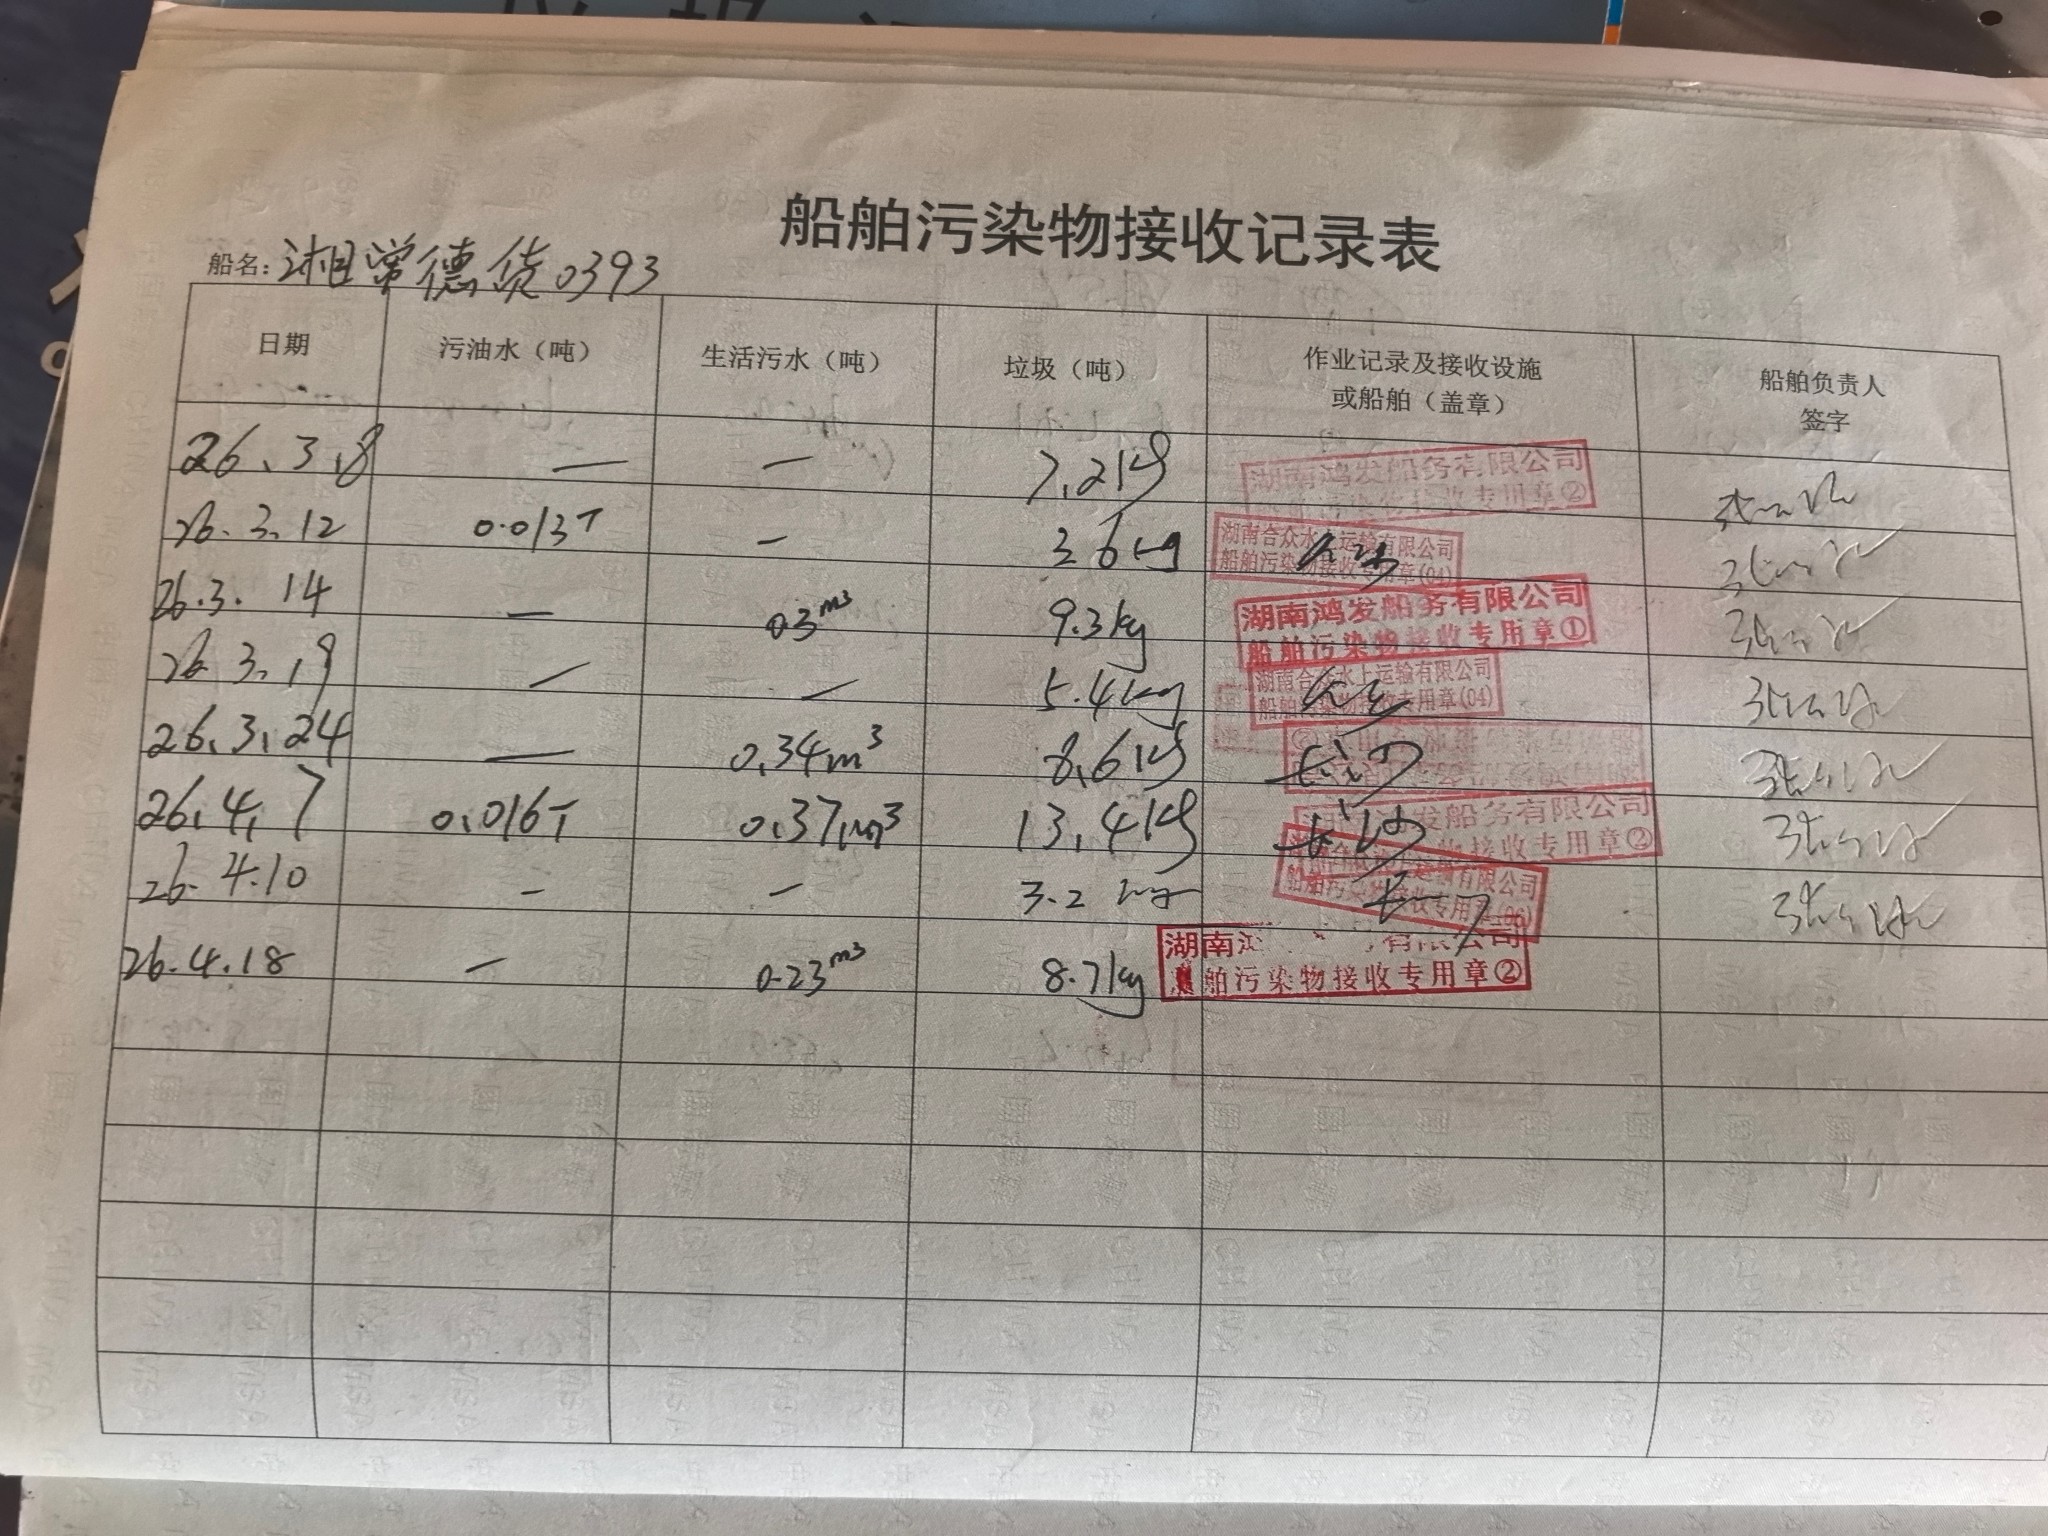 船舶污染物接收记录表
船名：湘常德货0393
日期 污油水（吨） 生活污水（吨） 垃圾（吨） 作业记录及接收设施或船舶（盖章） 船舶负责人签字
26.3.8 — — 7.2kg 湖南鸿发船务有限公司 船舶污染物接收专用章②
26.3.12 0.013T — 3.6kg 湖南合众水上运输有限公司 船舶污染物接收专用章(04)
26.3.14 — 0.3m³ 9.3kg 湖南鸿发船务有限公司 船舶污染物接收专用章①
26.3.19 — — 5.4kg 湖南合众水上运输有限公司 船舶污染物接收专用章(04)
26.3.24 — 0.34m³ 8.6kg 长沙
26.4.7 0.016T 0.37m³ 13.4kg 长沙 发船务有限公司 物接收专用章②
26.4.10 — — 3.2kg 运输有限公司 船舶污染物接收专用章(06)
26.4.18 — 0.23m³ 8.7kg 湖南鸿 有限公司 船舶污染物接收专用章②